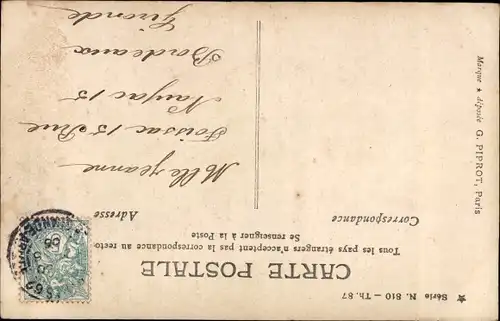 ★ Série N. 810 — Th. 87
CARTE POSTALE
Tous les pays étrangers n'acceptent pas la correspondance au recto
Se renseigner à la Poste
Correspondance
Adresse
Mlle Jeanne
Foissac 15 Rue
Naujac 15
Bordeaux
Gironde
Marque ★ déposée G. PIPROT, Paris